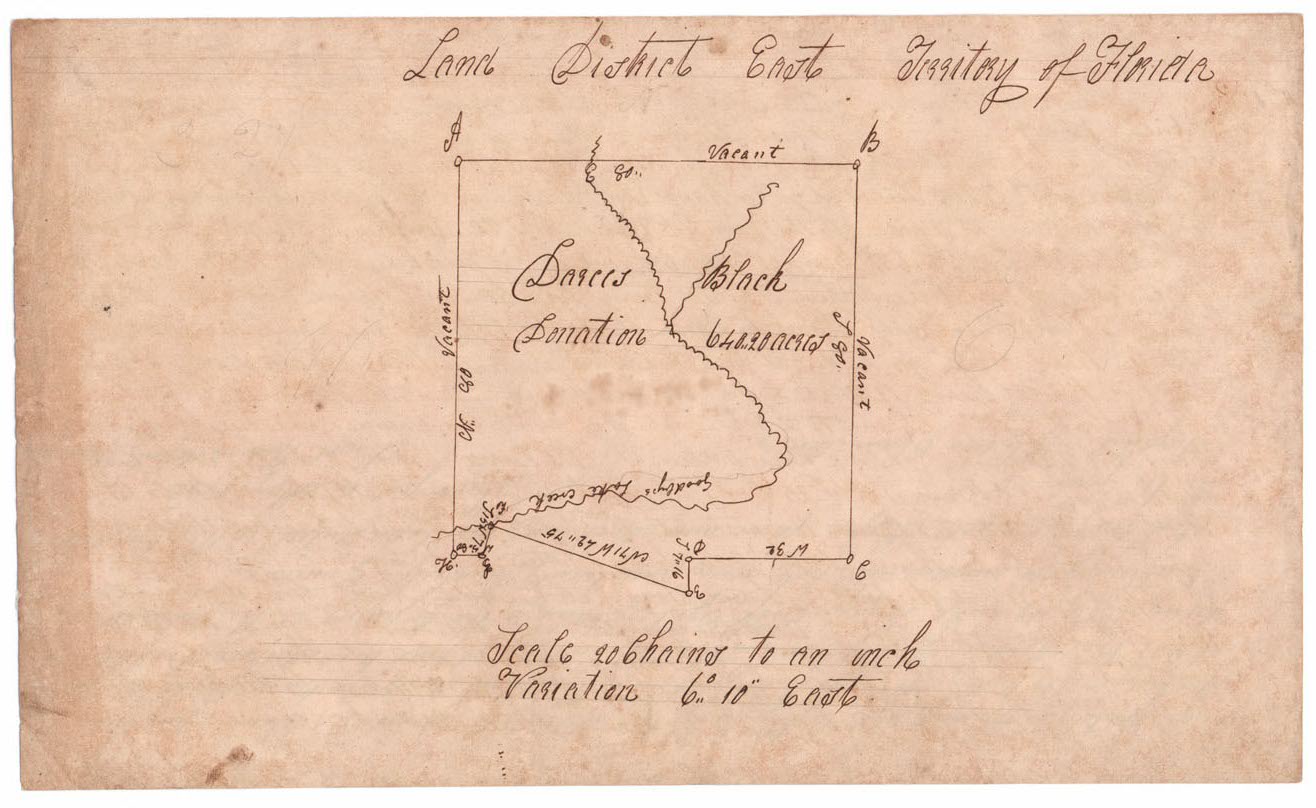 Land District East Territory of Florida
A
B
Vacant
80"
Darces Black
Donation 640"20 acres
Vacant
N" 80
Vacant
S 80"
Goodby's Lake Creek
N 71 W 42"75
S 7"16
W 32
Scale 20 Chains to an inch
Variation 6"° 10" East